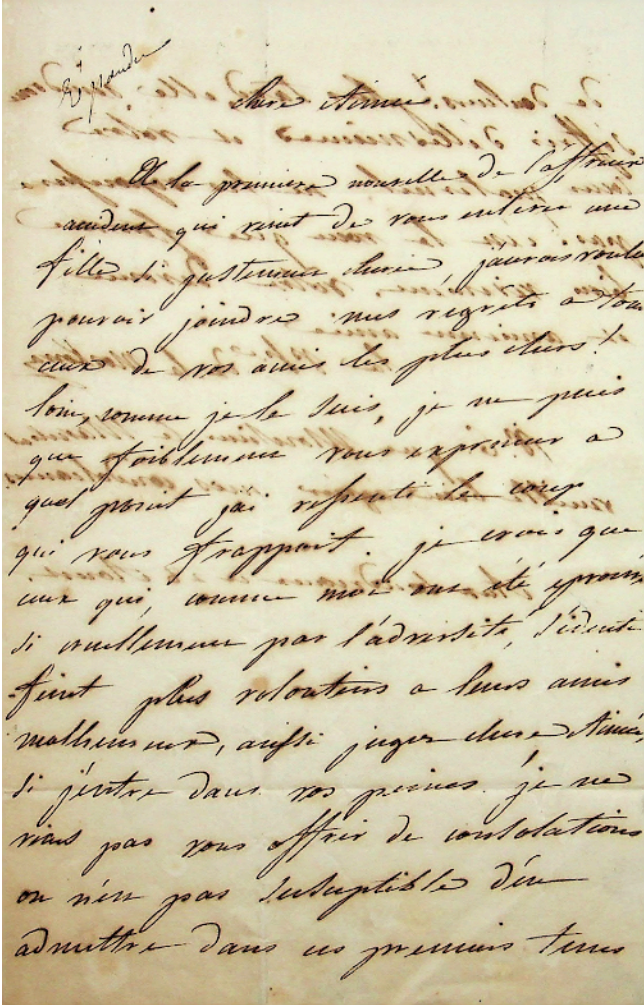 Répondu
chère Aimée
A la première nouvelle de l'affreux
accident qui vient de vous enlever une
fille si justement chérie, j'aurois voulu
pouvoir joindre mes regrets a tous
ceux de vos amis les plus chers!
loin, comme je le suis, je ne puis
que foiblement vous exprimer a
quel point j'ai ressenti le coup
qui vous frappoit. je crois que
ceux qui, comme moi ont été éprouvés
si cruellement par l'adversité, s'identi-
fient plus volontiers a leurs amis
malheureux, aussi jugez chere Aimée
si j'entre dans vos peines. je ne
viens pas vous offrir de consolations
on n'en pas susceptible d'en
admettre dans ces premiers tems